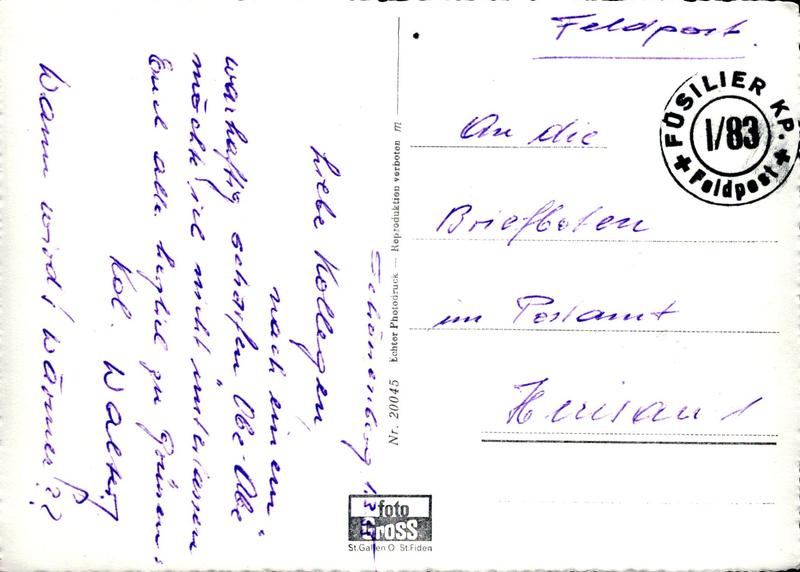 Schönenburg 1.3.
Liebe Kollegen,
nach ein em
warhaftig scharfen "Obe-Obe"
möchte ich nicht unterlassen
Euch alle herzlich zu grüssen.
Kol. Walter
Wann wird's wärmer??
Nr. 20045 Echter Photodruck — Reproduktion verboten m
foto
GROSS
St.Gallen O St.Fiden
Feldpost.
FÜSILIER KP.
I/83
Feldpost
An die
Briefboten
im Postamt
Herisau 1